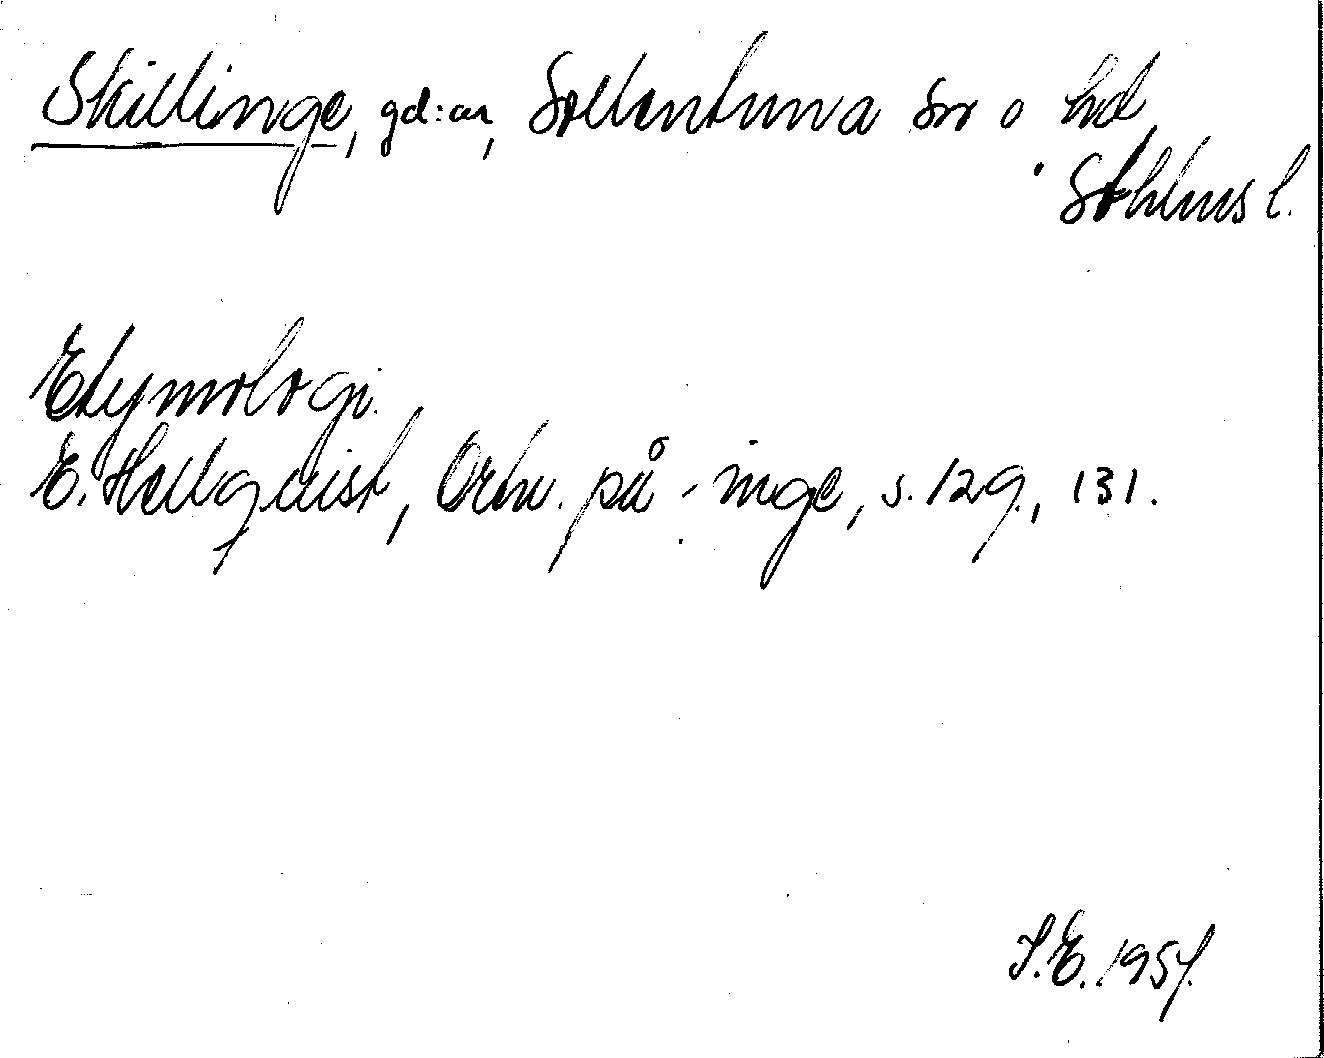 Skillinge, gd:ar, Sollentuna sn o hd,
Sthlms l.
Etymologi.
E. Hellquist, Ortn. på -inge, s. 129, 131.
S.E. 1957.